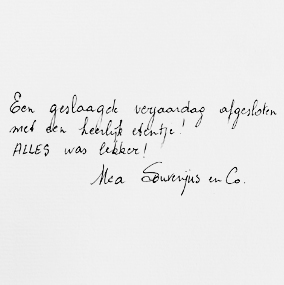 Een geslaagde verjaardag afgesloten
met een heerlijk etentje!
ALLES was lekker!
en Co.